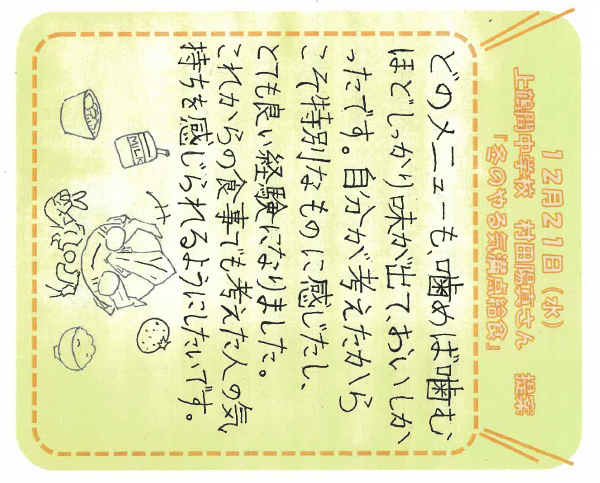 12月21日（水）
上鶴間中学校　村田陽真さん　提案
「冬のやる気満点給食」
どのメニューも、噛めば噛む
ほどしっかり味が出ておいしか
ったです。自分が考えたから
こそ特別なものに感じたし、
とても良い経験になりました。
これからの食事でも考えた人の気
持ちを感じられるようにしたいです。
MILK